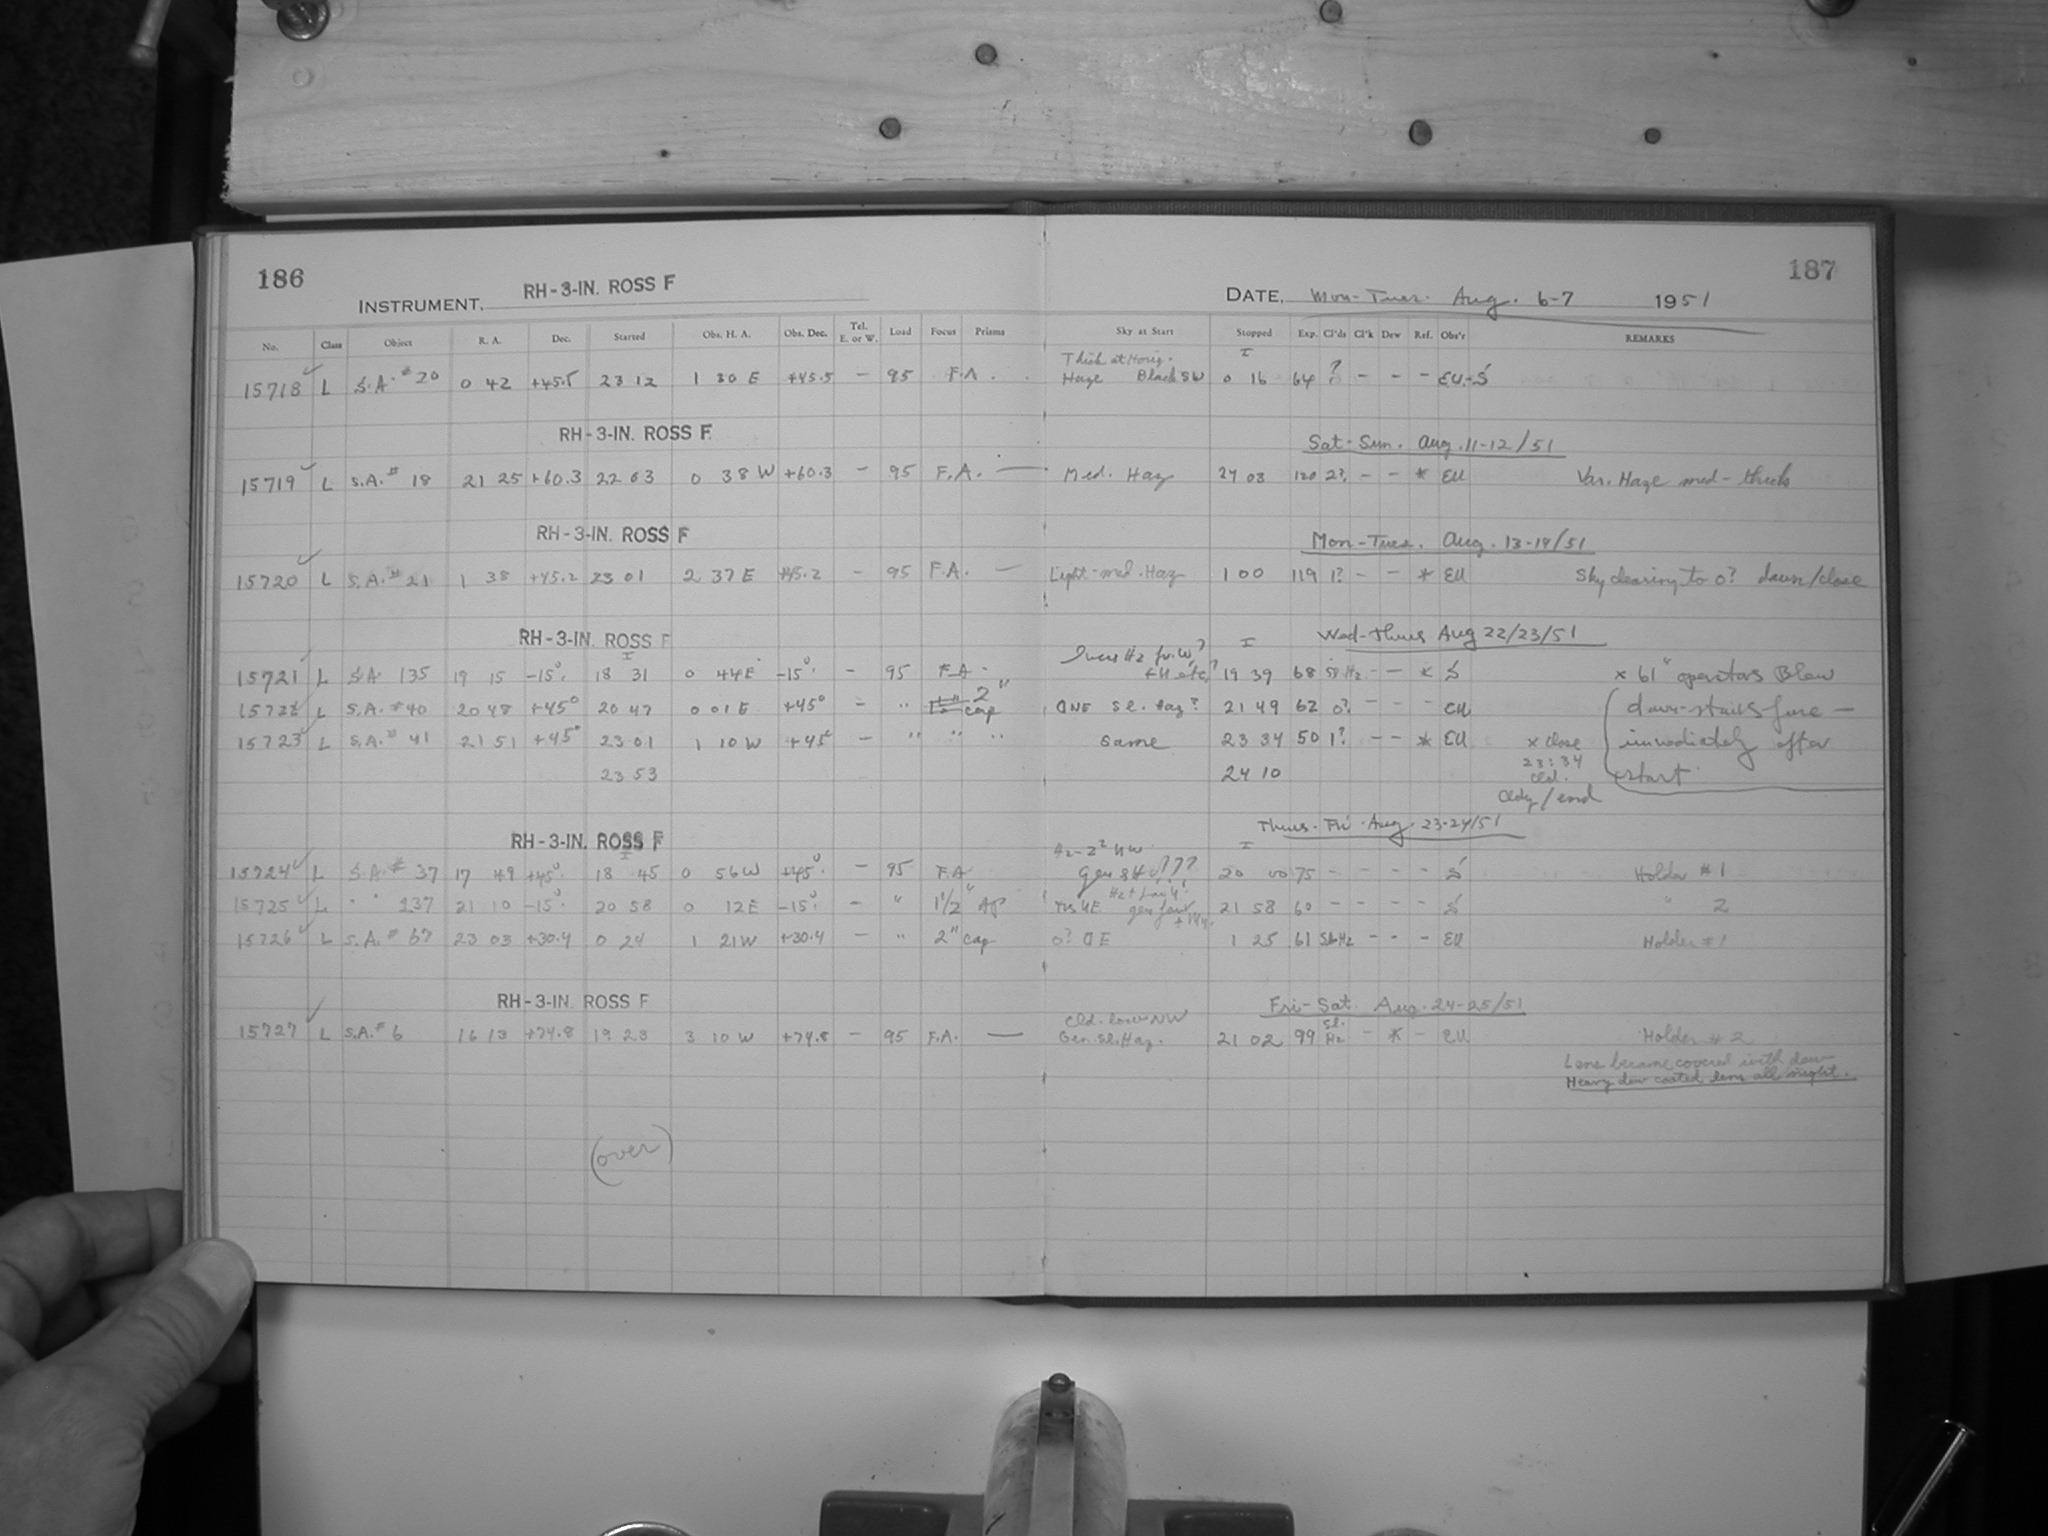 186
INSTRUMENT, RH-3-IN. ROSS F
No. Class Object R. A. Dec. Started Obs. H. A. Obs. Dec. Tel. E. or W. Load Focus Prisms
15718 L S.A. #20 0 42 +45.5 23 12 1 30 E +45.5 - 95 F.A.
RH-3-IN. ROSS F.
15719 L S.A.# 18 21 25 +60.3 22 03 0 38 W +60.3 - 95 F.A. —
RH-3-IN. ROSS F
15720 L S.A.# 21 1 38 +45.2 23 01 2 37 E +45.2 - 95 F.A. —
RH-3-IN. ROSS F
15721 L S.A. 135 19 15 -15° 18 31 0 44 E -15° - 95 F.A.
15722 L S.A. #40 20 48 +45° 20 47 0 01 E +45° - " 2" cap
15723 L S.A.# 41 21 51 +45° 23 01 1 10 W +45° - " " "
23 53
RH-3-IN. ROSS F
15724 L S.A.# 37 17 49 +45° 18 45 0 56 W +45° - 95 F.A
15725 L " " 137 21 10 -15° 20 58 0 12 E -15° - " 1½" Ap
15726 L S.A.# 67 23 03 +30.4 0 24 1 21 W +30.4 - " 2" cap
RH-3-IN. ROSS F
15727 L S.A.# 6 16 13 +74.8 19 23 3 10 W +74.8 - 95 F.A. —
(over)
187
DATE, Mon-Tues. Aug. 6-7 1951
Sky at Start Stopped Exp. Cl'ds Cl'k Dew Ref. Obs'r REMARKS
Thick at Horiz. I
Haze Black SW 0 16 64 ? - - - EU-S
Sat-Sun. Aug. 11-12/51
Med. Haz 24 03 120 2? - - * EU Var. Haze med-thick
Mon-Tues. Aug. 13-14/51
Light-med. Haz 1 00 119 1? - - * EU Sky clearing to 0? dawn/close
I Wed-Thurs Aug 22/23/51
19 39 68 Sl Hz - - * S x 61" operators Blew
Sl. Haz? 21 49 62 0? - - - EU down-stairs fuse —
same 23 34 50 1? - - * EU x close immediately after
24 10 23:34 cld. start.
Cldy/end
Thurs-Fri Aug. 23-24/51
I
20 00 75 - - - - S Holder #1
21 58 60 - - - - S " 2
0? 1 25 61 Sl. Hz - - - EU Holder #1
Fri-Sat. Aug. 24-25/51
Cld. low NW
Gen. Sl. Haz. 21 02 99 Sl. Hz - * - EU Holder #2
Lens became covered with dew
Heavy dew coated lens all night.